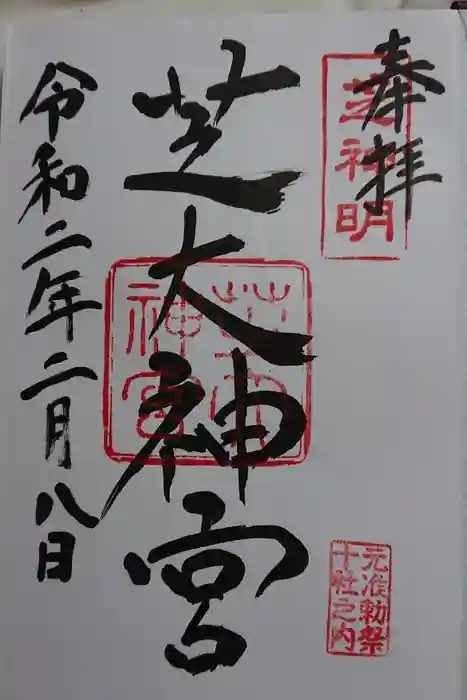 奉拝
芝神明
芝大神宮
芝大
神宮
令和二年二月八日
元准勅祭
十社之内